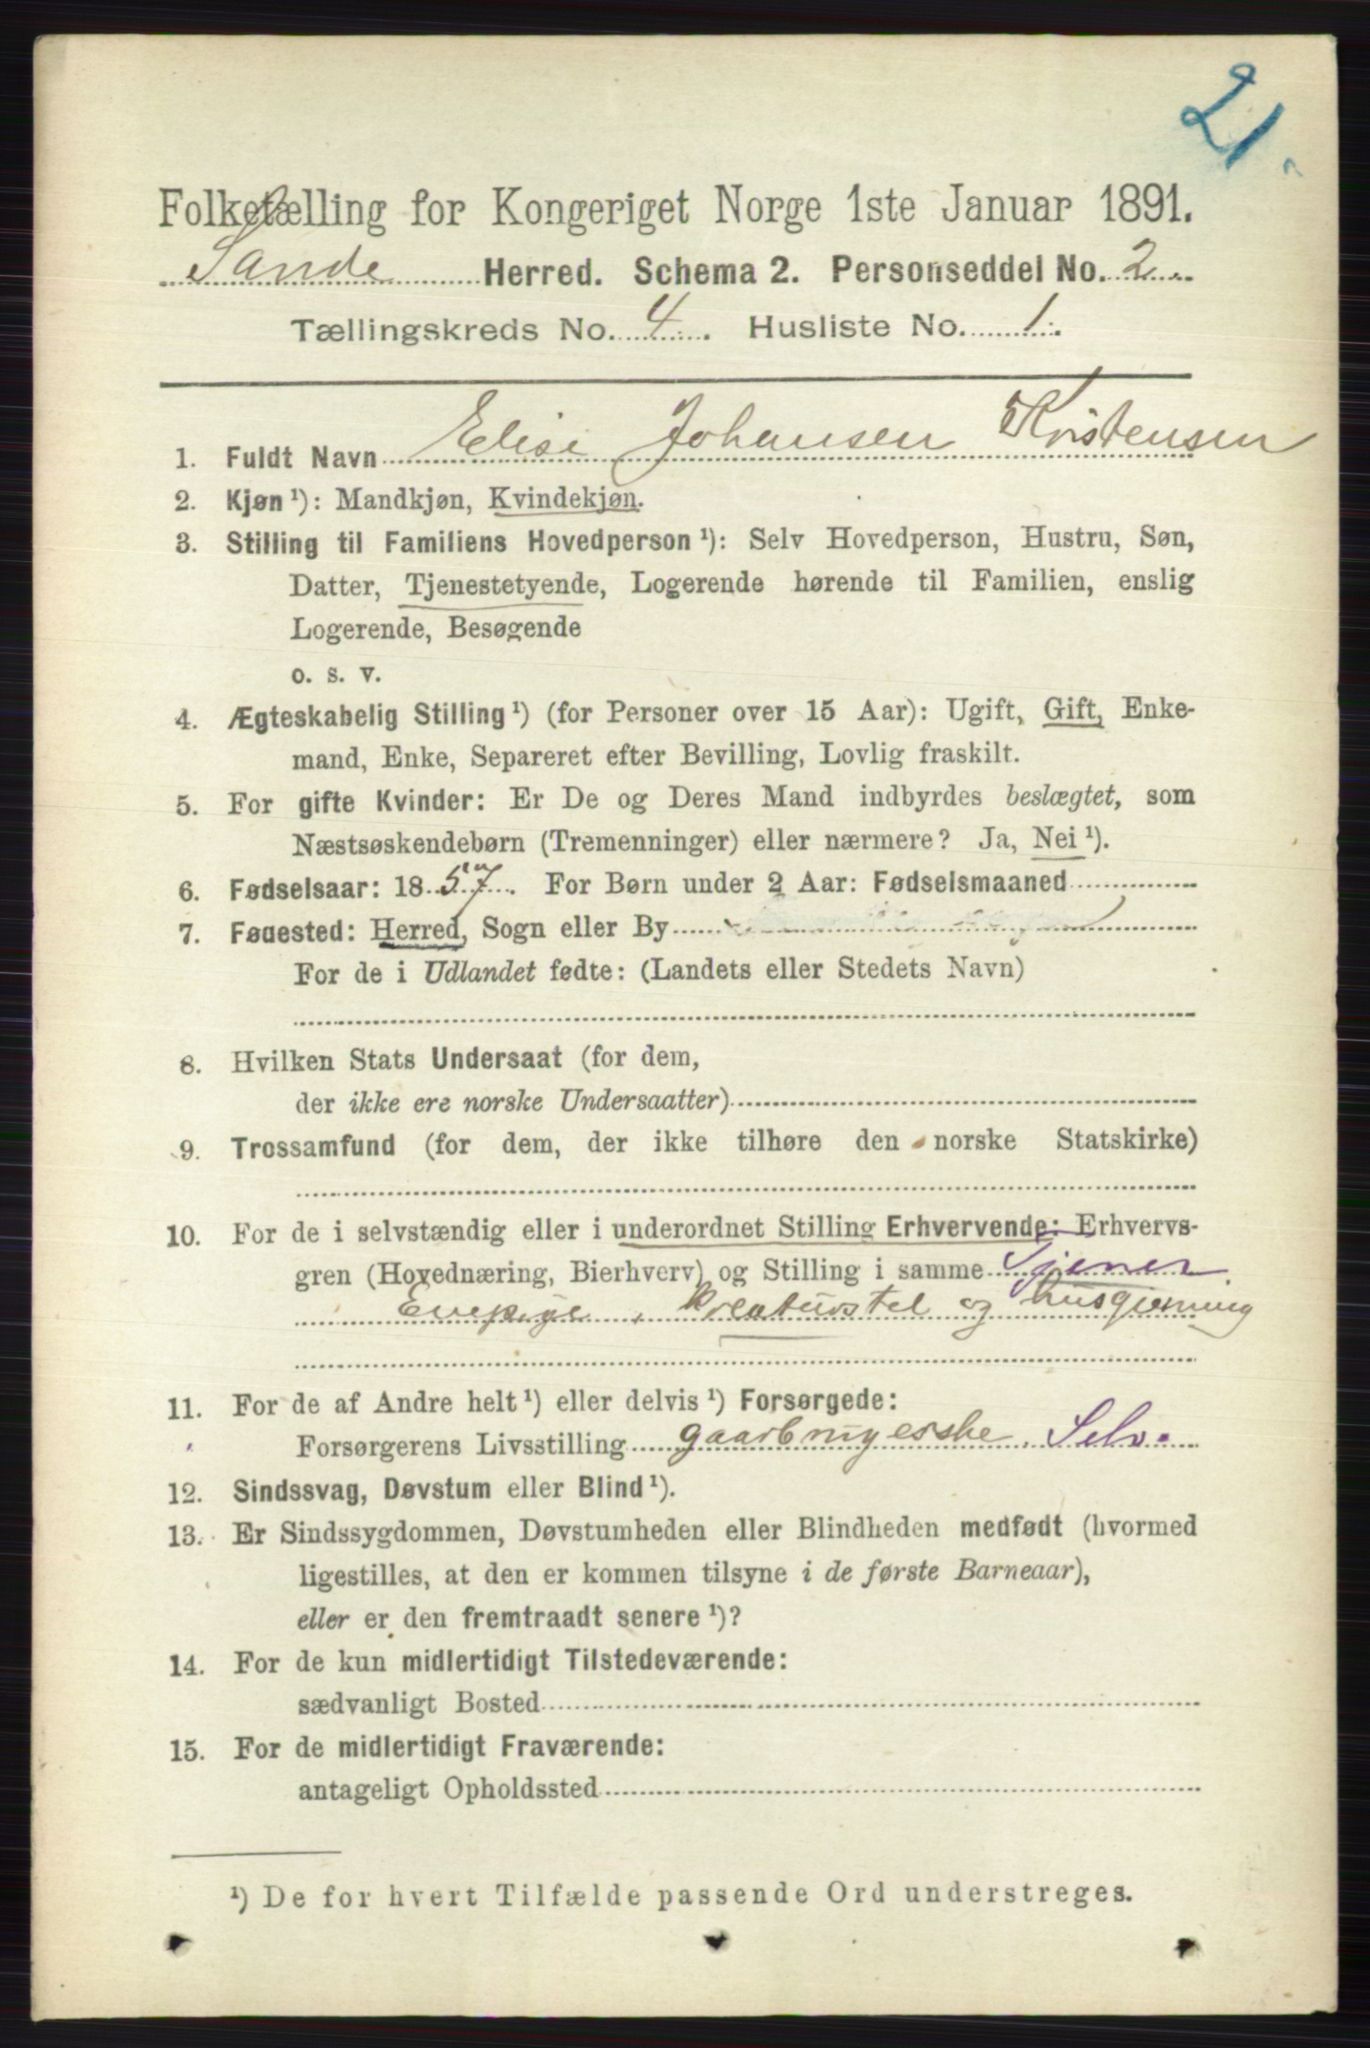 21.
Folketælling for Kongeriget Norge 1ste Januar 1891.
Sande Herred. Schema 2. Personseddel No. 2
Tællingskreds No. 4. Husliste No. 1.
1. Fuldt Navn Elise Johansen Kristensen
2. Kjøn ¹): Mandkjøn, Kvindekjøn.
3. Stilling til Familiens Hovedperson ¹): Selv Hovedperson, Hustru, Søn,
Datter, Tjenestetyende, Logerende hørende til Familien, enslig
Logerende, Besøgende
o. s. v.
4. Ægteskabelig Stilling ¹) (for Personer over 15 Aar): Ugift, Gift, Enke-
mand, Enke, Separeret efter Bevilling, Lovlig fraskilt.
5. For gifte Kvinder: Er De og Deres Mand indbyrdes beslægtet, som
Næstsøskendebørn (Tremenninger) eller nærmere? Ja, Nei ¹).
6. Fødselsaar: 1857. For Børn under 2 Aar: Fødselsmaaned
7. Fødested: Herred, Sogn eller By
For de i Udlandet fødte: (Landets eller Stedets Navn)
8. Hvilken Stats Undersaat (for dem,
der ikke ere norske Undersaatter)
9. Trossamfund (for dem, der ikke tilhøre den norske Statskirke)
10. For de i selvstændig eller i underordnet Stilling Erhvervende: Erhvervs-
gren (Hovednæring, Bierhverv) og Stilling i samme Tjener
Enepige, Kreaturstel og husgjerning
11. For de af Andre helt ¹) eller delvis ¹) Forsørgede:
Forsørgerens Livsstilling gaarbrugerske. Selv.
12. Sindssvag, Døvstum eller Blind ¹).
13. Er Sindssygdommen, Døvstumheden eller Blindheden medfødt (hvormed
ligestilles, at den er kommen tilsyne i de første Barneaar),
eller er den fremtraadt senere ¹)?
14. For de kun midlertidigt Tilstedeværende:
sædvanligt Bosted
15. For de midlertidigt Fraværende:
antageligt Opholdssted
¹) De for hvert Tilfælde passende Ord understreges.